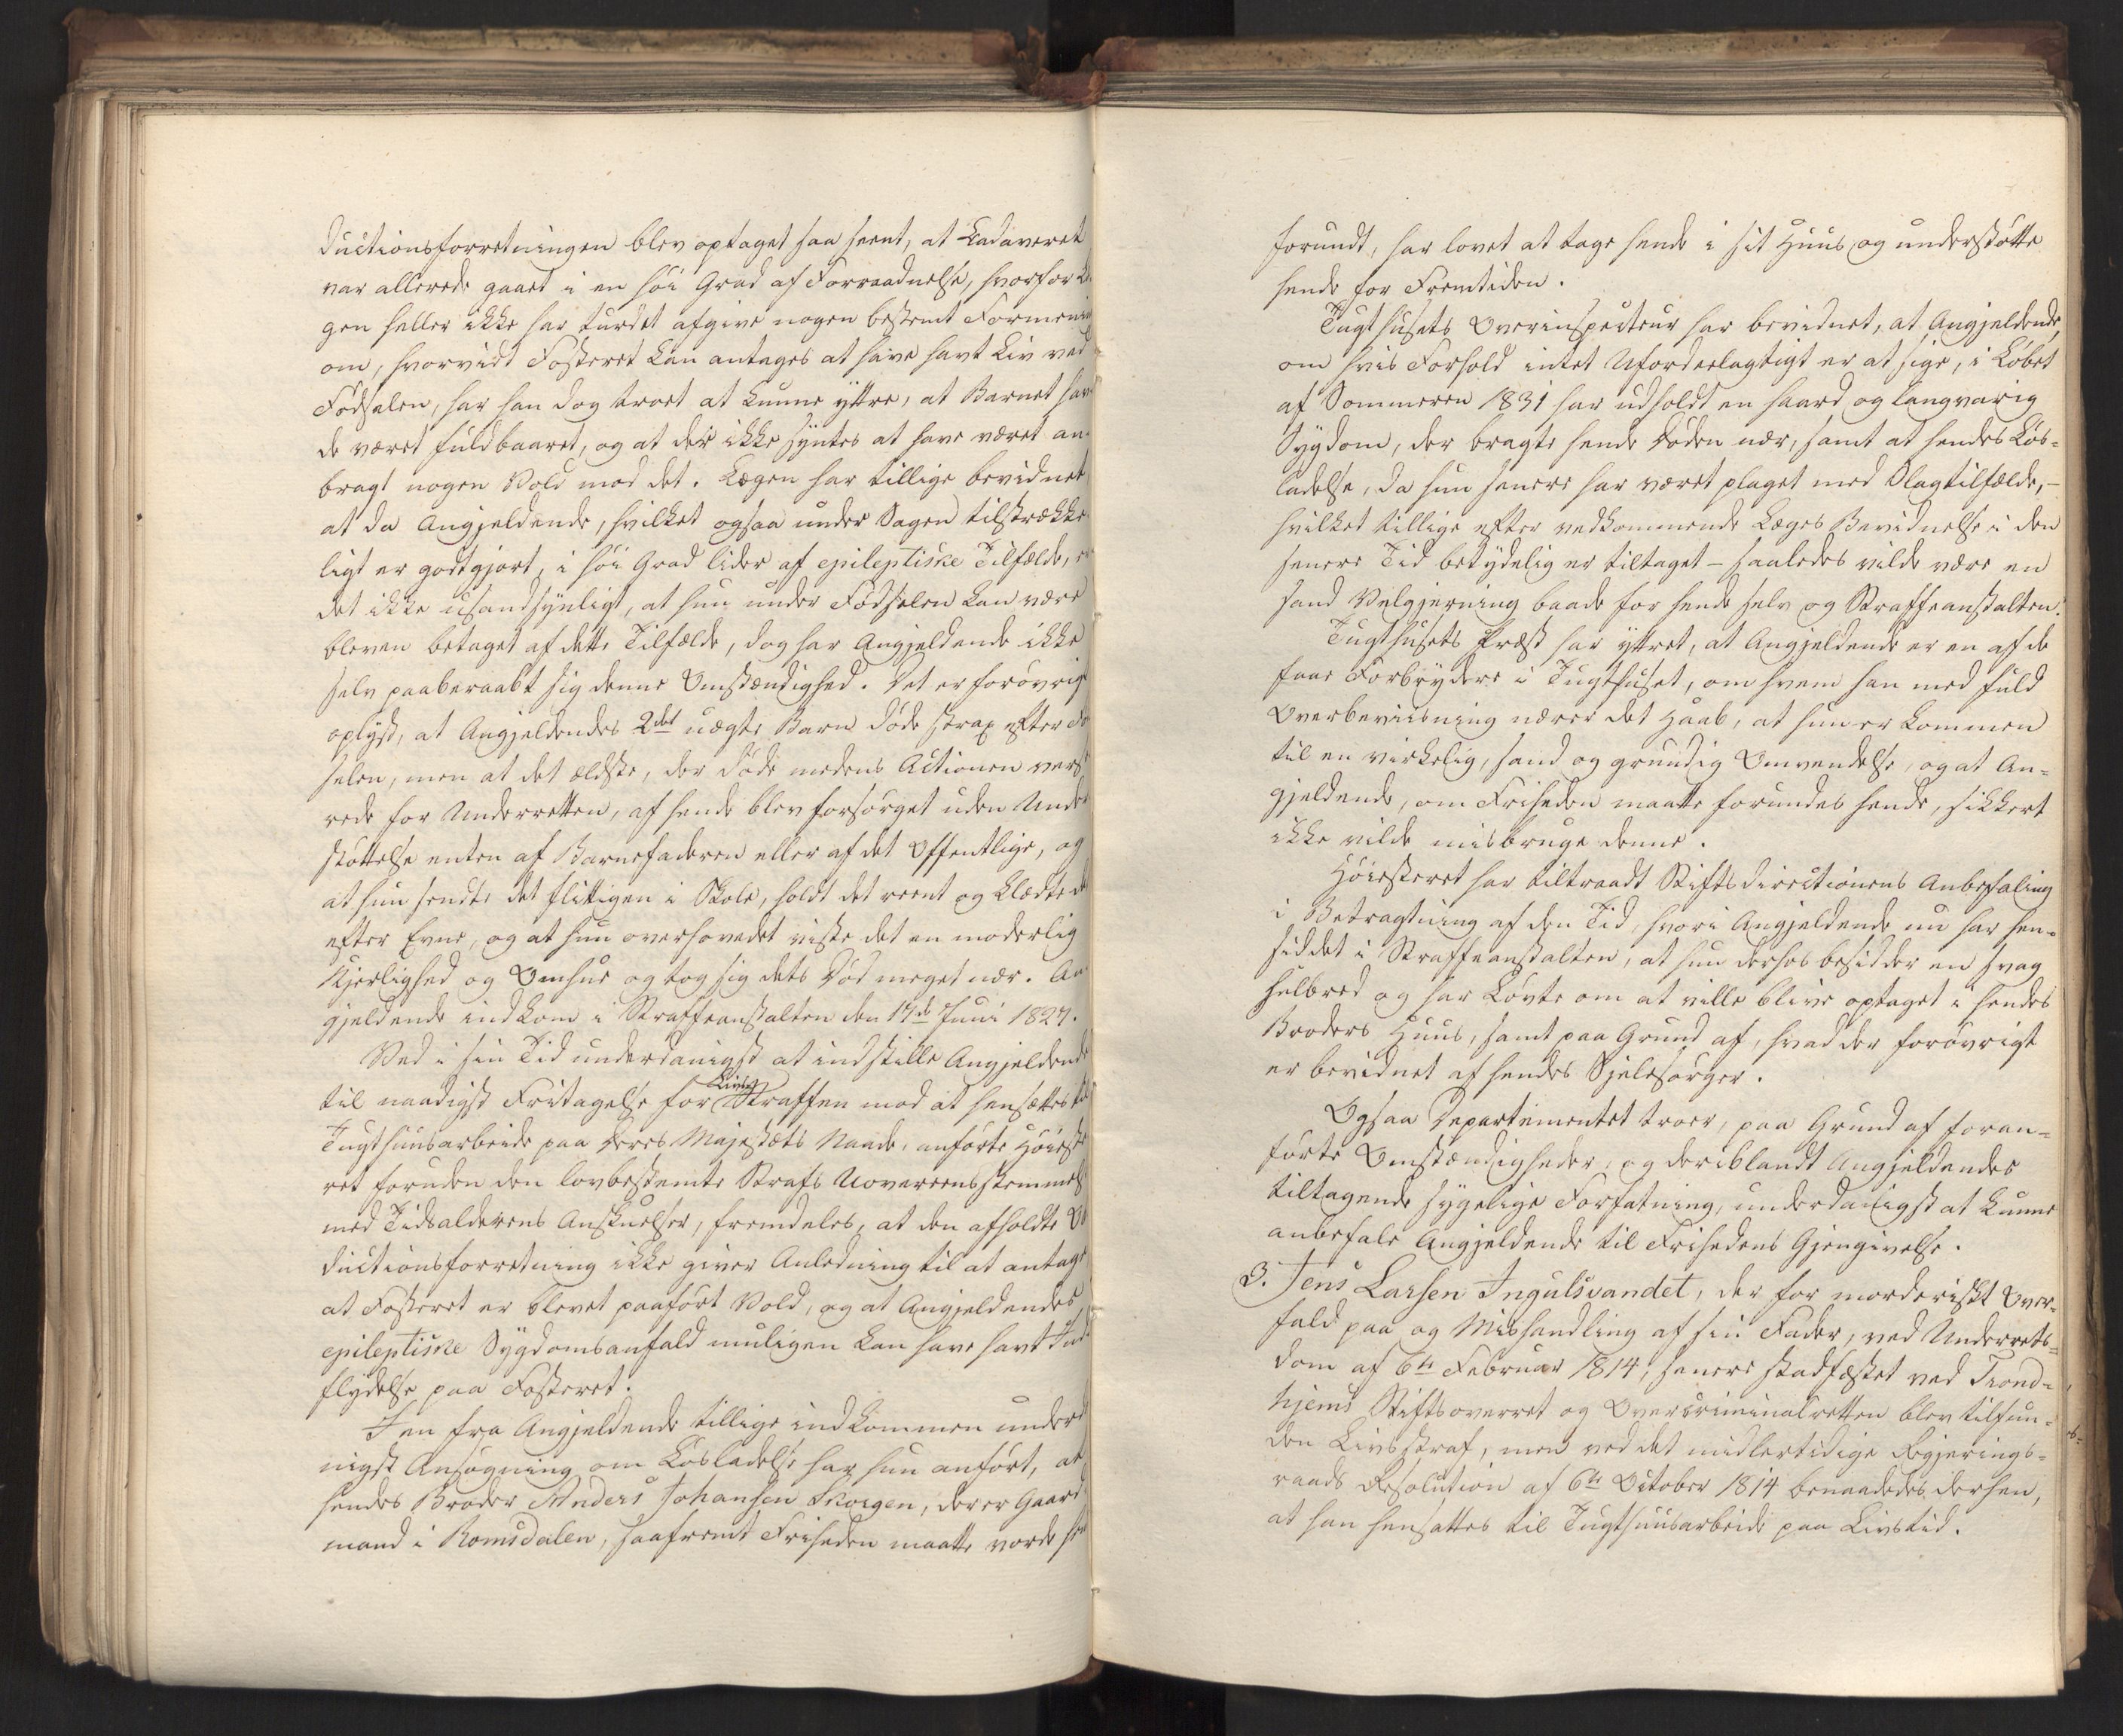 ductionsforretningen blev optaget saa seent, at Kadaveret
var allerede gaaet i en høi Grad af Forraadnelse, hvorfor Læ-
gen heller ikke har turdet afgive nogen bestemt Formenin
om, hvorvidt Fosteret kan antages at have havt Liv ved
Fødselen, har han dog troet at kunne yttre, at Barnet hav-
de været fuldbaaret, og at der ikke syntes at have været an-
bragt nogen Vold mod det. Lægen har tillige bevidnet
at da Angjeldende, hvilket ogsaa under Sagen tilstrække-
ligt er godtgjort, i høi Grad lider af epileptiske Tilfælde, er
det ikke usandsynligt, at hun under Fødselen kan være
bleven betaget af dette Tilfælde, dog har Angjeldende ikke
selv paaberaabt sig denne Omstændighed. Det er forøvrigt
oplyst, at Angjeldendes 2det uægte Barn døde strax efter Fø
selen, men at det ældste, der døde medens Actionen verse
rede for Underretten, af hende blev forsørget uden Under
støttelse enten af Barnefaderen eller af det Offentlige, og
at hun sendte det flittigen i Skole, holdt det reent og klædte det
efter Evne, og at hun overhovedet viste det en moderlig
Kjerlighed og Omhue og tog sig dets Død meget nær. An-
gjeldende indkom i Straffeanstalten den 17de Juni 1827.
Ved i sin Tid underdanigst at indstille Angjeldende
til naadigst Fritagelse for Livsstraffen mod at hensættes til
Tugthuusarbeide paa Deres Majestæts Naade, anførte Høieste
ret foruden den lovbestemte Strafs Uovereensstemmelse
med Tidsalderens Anskuelser, fremdeles, at den afholdte Ob
ductionsforretning ikke giver Anledning til at antage
at Fosteret er blevet paaført Vold, og at Angjeldendes
epileptiske Sygdomsanfald muligen kan have havt Ind-
flydelse paa Fosteret.
I en fra Angjeldende tillige indkommen underd
nigst Ansøgning om Løsladelse har hun anført, at
hendes Broder Anders Johansen Skorgen, der er Gaard
mand i Romsdalen, saafremt Friheden maatte vorde hen
forundt, har lovet at tage hende i sit Huus og understøtte
hende for Fremtiden.
Tugthusets Overinspecteur har bevidnet, at Angjeldende,
om hvis Forhold intet Ufordeelagtigt er at sige, i Løbet
af Sommeren 1831 har udholdt en haard og langvarig
Sygdom, der bragte hende Døden nær, samt at hendes Løs-
ladelse, da hun senere har været plaget med Slagtilfælde, –
hvilket tillige efter vedkommende Læges Bevidnelse i den
senere Tid betydelig er tiltaget – saaledes vilde være en
sand Velgjerning baade for hende selv og Straffeanstalten.
Tugthusets Præst har yttret, at Angjeldende er en af de
faae Forbrydere i Tugthuset, om hvem han med fuld
Overbeviisning nærer det Haab, at hun er kommen
til en virkelig, sand og grundig Omvendelse, og at An-
gjeldende, om Friheden maatte forundes hende, sikkert
ikke vilde misbruge denne.
Høiesteret har tiltraadt Stiftsdirectionens Anbefaling
i Betragtning af den Tid, hvori Angjeldende nu har hen-
siddet i Straffeanstalten, at hun derhos besidder en svag
Helbred og har Løvte om at ville blive optaget i hendes
Broders Huus, samt paa Grund af, hvad der forøvrigt
er bevidnet af hendes Sjelesørger.
Ogsaa Departementet troer, paa Grund af foran-
førte Omstændigheder, og deriblandt Angjeldendes
tiltagende sygelige Forfatning, underdanigst at kunne
anbefale Angjeldende til Frihedens Gjengivelse.
3. Jens Larsen Ingulsvandet, der for morderiskt Over-
fald paa og Mishandling af sin Fader, ved Underrets-
dom af 6te Februar 1814, senere stadfæstet ved Trond-
hjems Stiftsoverret og Overcriminalretten blev tilfun-
den Livsstraf, men ved det midlertidige Regjerings-
raads Resolution af 6te October 1814 benaadedes derhen,
at han hensattes til Tugthuusarbeide paa Livstid.